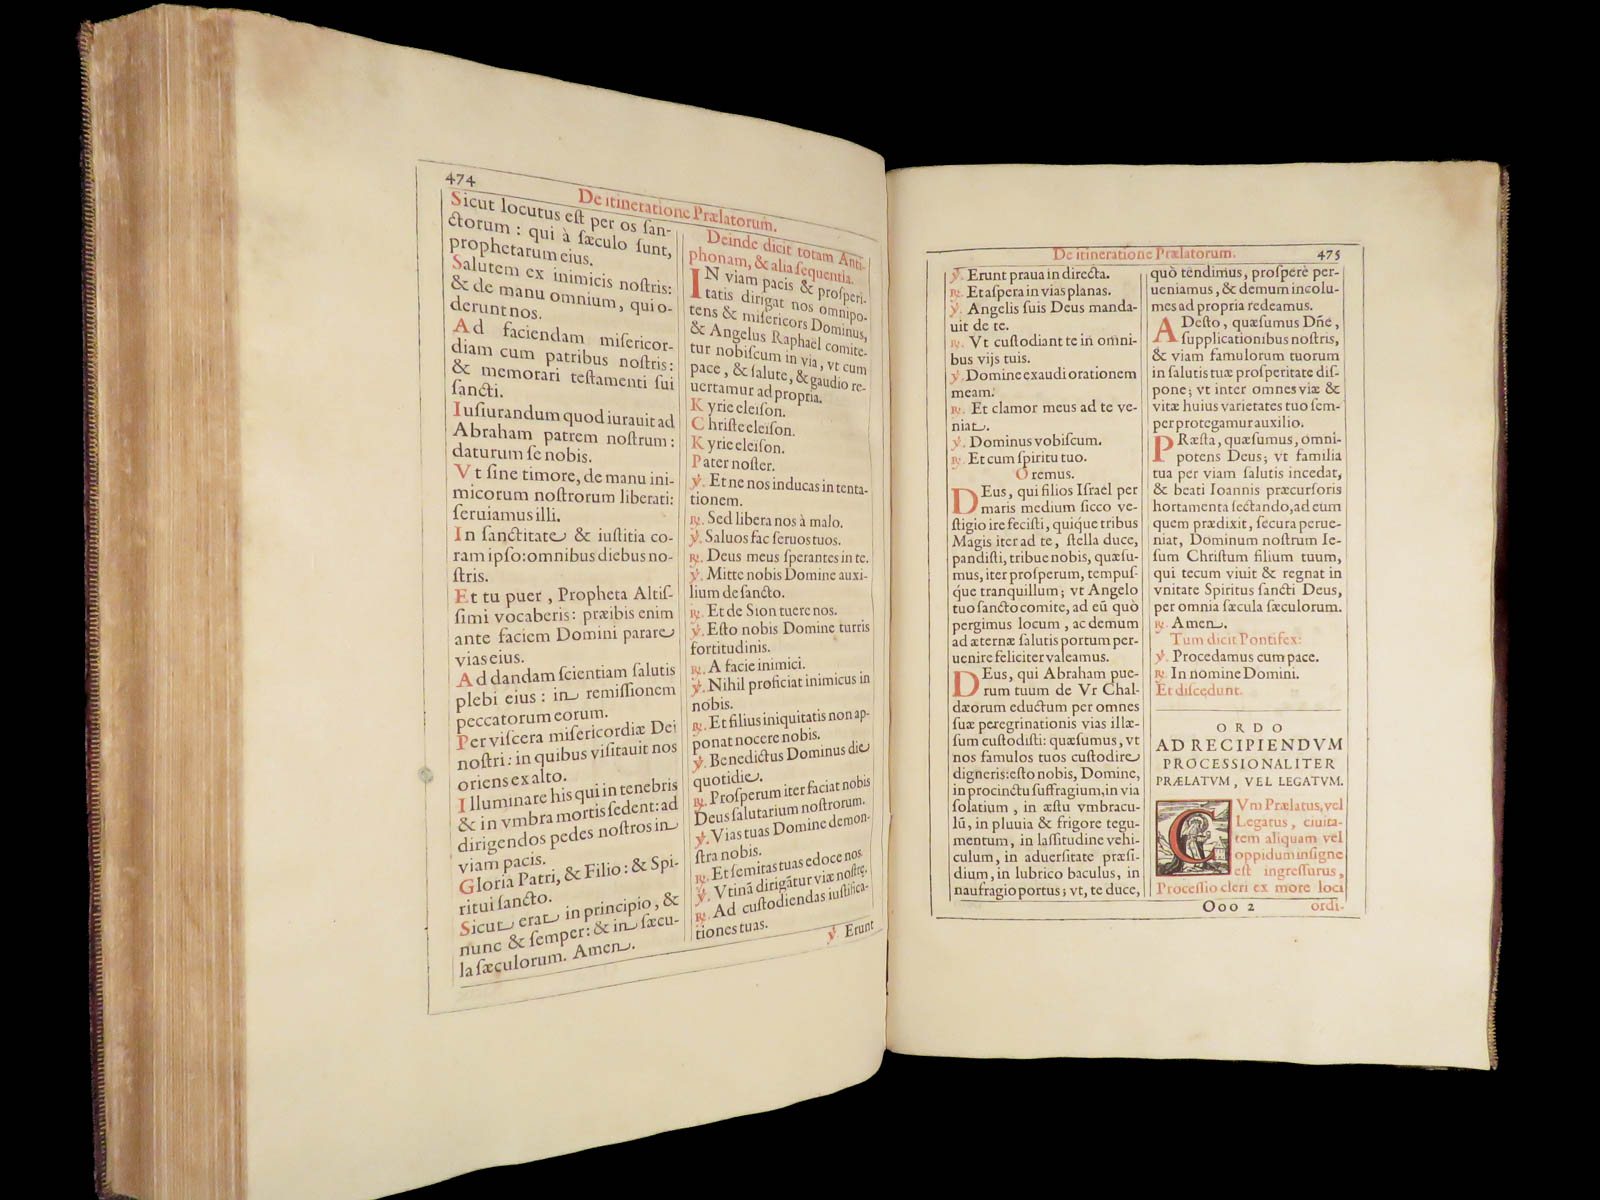 474
De itineratione Prælatorum.
Sicut locutus eſt per os ſan-
ctorum : qui à ſæculo ſunt,
prophetarum eius.
Salutem ex inimicis noſtris:
& de manu omnium, qui o-
derunt nos.
Ad faciendam miſericor-
diam cum patribus noſtris:
& memorari teſtamenti ſui
ſancti.
Iuſiurandum quod iurauit ad
Abraham patrem noſtrum :
daturum ſe nobis.
Vt ſine timore, de manu ini-
micorum noſtrorum liberati:
ſeruiamus illi.
In ſanctitate & iuſtitia co-
ram ipſo: omnibus diebus no-
ſtris.
Et tu puer , Propheta Altiſ-
ſimi vocaberis: præibis enim
ante faciem Domini parare
vias eius.
Ad dandam ſcientiam ſalutis
plebi eius : in remiſſionem
peccatorum eorum.
Per viſcera miſericordiæ Dei
noſtri : in quibus viſitauit nos
oriens ex alto.
Illuminare his qui in tenebris
& in vmbra mortis ſedent: ad
dirigendos pedes noſtros in
viam pacis.
Gloria Patri, & Filio : & Spi-
ritui ſancto.
Sicut erat in principio, &
nunc & ſemper: & in ſæcu-
la ſæculorum. Amen.
Deinde dicit totam Anti-
phonam, & alia ſequentia.
IN viam pacis & proſperi-
tatis dirigat nos omnipo-
tens & miſericors Dominus,
& Angelus Raphaël comite-
tur nobiſcum in via, vt cum
pace , & ſalute, & gaudio re-
uertamur ad propria.
Kyrie eleiſon.
Chriſte eleiſon.
Kyrie eleiſon.
Pater noſter.
℣. Et ne nos inducas in tenta-
tionem.
℟. Sed libera nos à malo.
℣. Saluos fac ſeruos tuos.
℟. Deus meus ſperantes in te.
℣. Mitte nobis Domine auxi-
lium de ſancto.
℟. Et de Sion tuere nos.
℣. Eſto nobis Domine turris
fortitudinis.
℟. A facie inimici.
℣. Nihil proficiat inimicus in
nobis.
℟. Et filius iniquitatis non ap-
ponat nocere nobis.
℣. Benedictus Dominus die
quotidie.
℟. Proſperum iter faciat nobis
Deus ſalutarium noſtrorum.
℣. Vias tuas Domine demon-
ſtra nobis.
℟. Et ſemitas tuas edoce nos.
℣. Vtinā dirigātur viæ noſtrę.
℟. Ad cuſtodiendas iuſtifica-
tiones tuas.
℣. Erunt
De itineratione Prælatorum.
475
℣. Erunt praua in directa.
℟. Et aſpera in vias planas.
℣. Angelis ſuis Deus manda-
uit de te.
℟. Vt cuſtodiant te in omni-
bus vijs tuis.
℣. Domine exaudi orationem
meam.
℟. Et clamor meus ad te ve-
niat.
℣. Dominus vobiſcum.
℟. Et cum ſpiritu tuo.
Oremus.
DEus, qui filios Iſrael per
maris medium ſicco ve-
ſtigio ire feciſti, quique tribus
Magis iter ad te , ſtella duce,
pandiſti, tribue nobis, quæſu-
mus, iter proſperum, tempuſ-
que tranquillum; vt Angelo
tuo ſancto comite, ad eū quò
pergimus locum , ac demum
ad æternæ ſalutis portum per-
uenire feliciter valeamus.
DEus, qui Abraham pue-
rum tuum de Vr Chal-
dæorum eductum per omnes
ſuæ peregrinationis vias illæ-
ſum cuſtodiſti: quæſumus, vt
nos famulos tuos cuſtodire
digneris: eſto nobis, Domine,
in procinctu ſuffragium, in via
ſolatium , in æſtu vmbracu-
lū, in pluuia & frigore tegu-
mentum, in laſſitudine vehi-
culum, in aduerſitate præſi-
dium, in lubrico baculus, in
naufragio portus; vt, te duce,
quò tendimus, proſperè per-
ueniamus , & demum incolu-
mes ad propria redeamus.
ADeſto , quæſumus Dñe ,
ſupplicationibus noſtris,
& viam famulorum tuorum
in ſalutis tuæ proſperitate diſ-
pone; vt inter omnes viæ &
vitæ huius varietates tuo ſem-
per protegamur auxilio.
PRæſta, quæſumus, omni-
potens Deus; vt familia
tua per viam ſalutis incedat,
& beati Ioannis præcurſoris
hortamenta ſectando, ad eum
quem prædixit, ſecura perue-
niat, Dominum noſtrum Ie-
ſum Chriſtum filium tuum,
qui tecum viuit & regnat in
vnitate Spiritus ſancti Deus,
per omnia ſæcula ſæculorum.
℟. Amen.
Tum dicit Pontifex:
℣. Procedamus cum pace.
℟. In nomine Domini.
Et diſcedunt.
ORDO
AD RECIPIENDVM
PROCESSIONALITER
PRÆLATVM, VEL LEGATVM.
CVm Prælatus, vel
Legatus , ciuita-
tem aliquam vel
oppidum inſigne
eſt ingreſſurus ,
Proceſſio cleri ex more loci
Ooo 2
ordi-